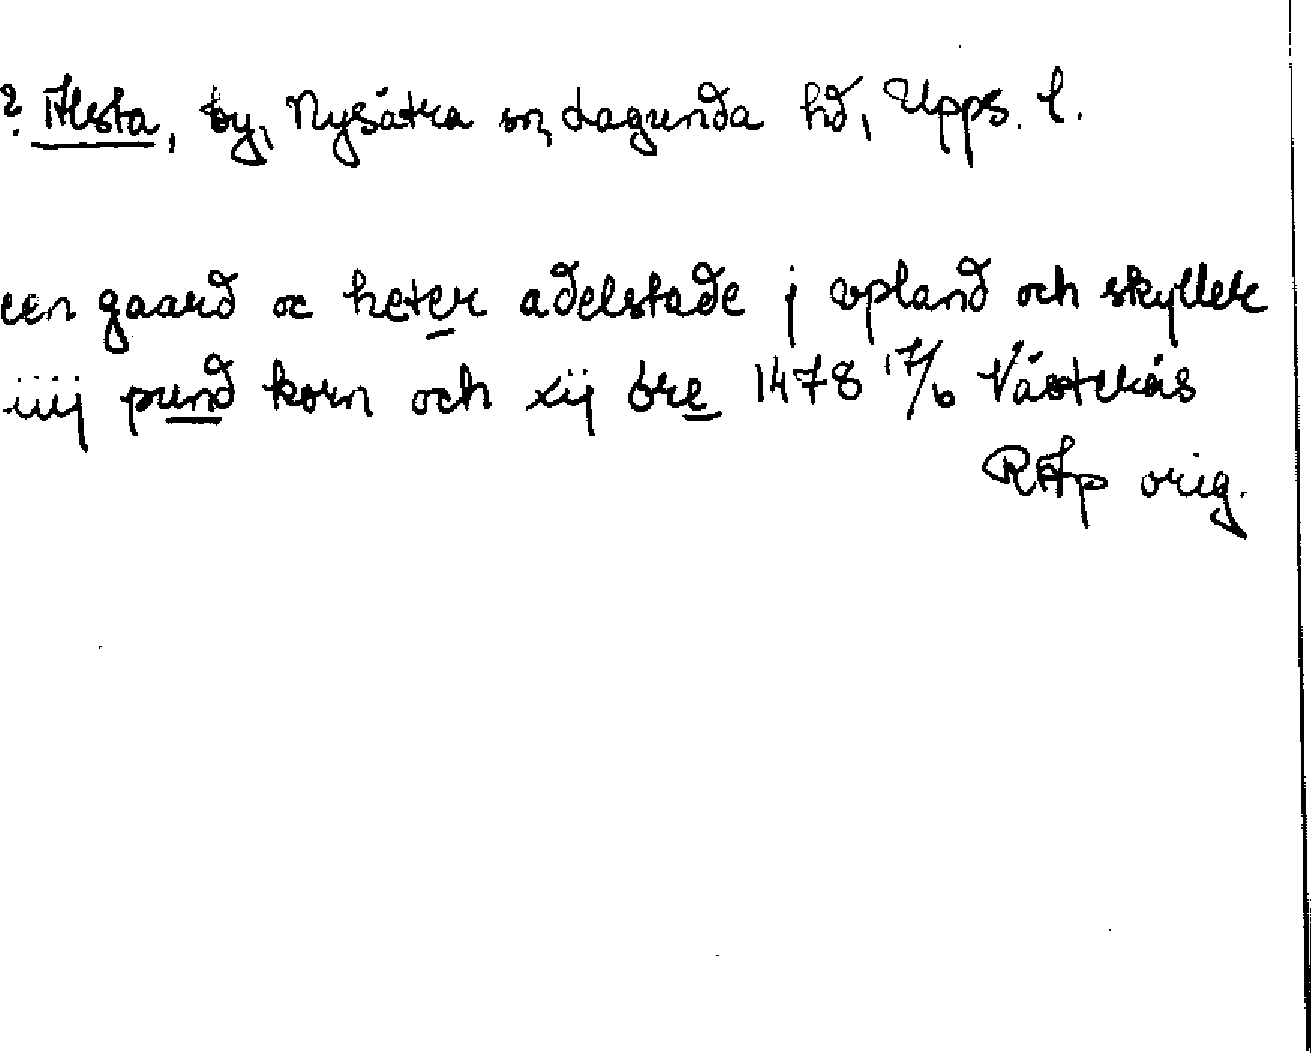 ? Alsta, by, Nysätra sn, Lagunda hd, Upps. l.
een gaard oc heter adelstade j vpland och skyller
iiij pund korn och xij öre 1478 17/6 Västerås
RAp orig.